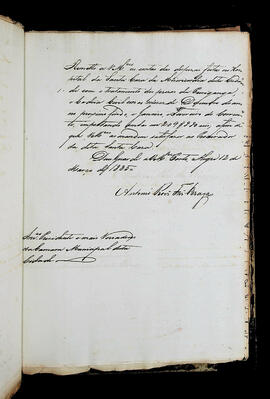 Remetto a V.M.ces as contas das despezas feitas no Hos-
pital da Santa Casa da Misericordia desta Cida-
de com o tratamento dos prezos de
a Cadêa Civil nos mezes de Dezembro do an-
no proximo findo, e Janeiro, e Fevereiro do corren-
te, importando tudo em afim de
que V.M.ces as mandem satisfazer ao Procurador
da dita Santa Casa.
Deos Guarde a V.M.ces Porto Alegre 12 de
Março de 1835.
Antonio Roiz Frz Braga
Snr.es Presidente e mais Vereadores
da Camara Municipal desta
Cidade